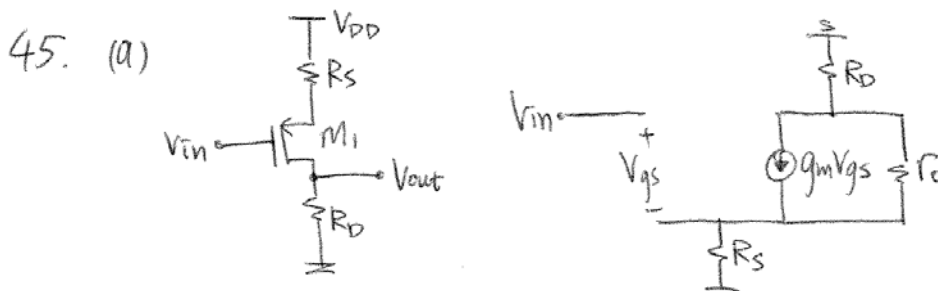 45. (a)
VDD
RS
Vin
M1
Vout
RD
RD
Vin
+
Vgs
-
gmVgs
RS